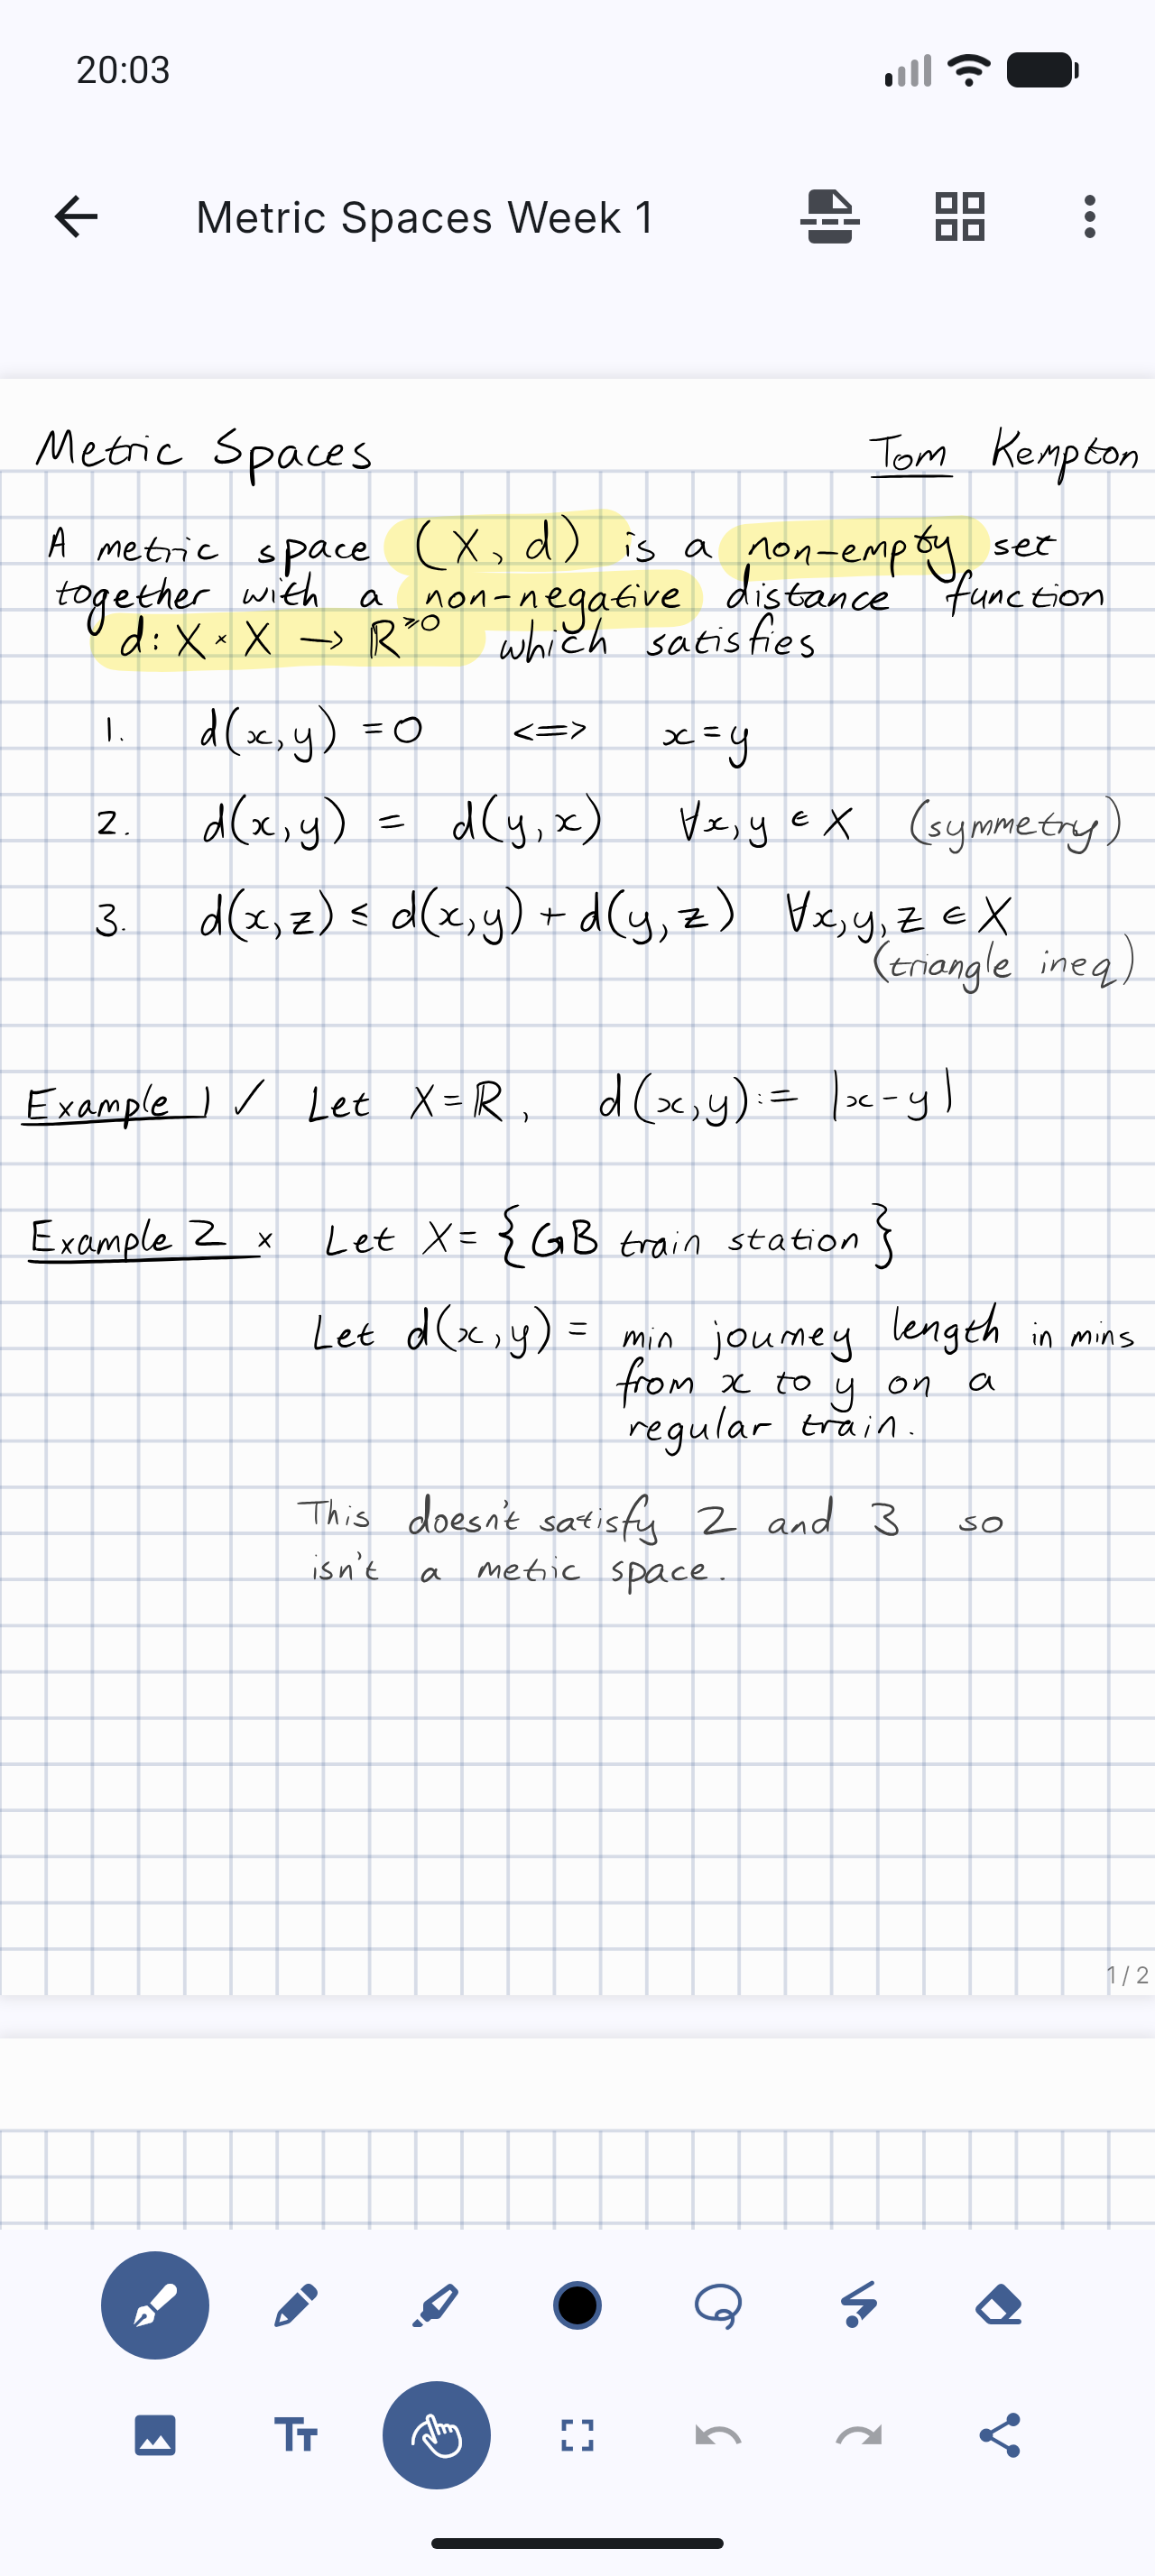 20:03
Metric Spaces Week 1
Metric Spaces Tom Kempton
A metric space (X, d) is a non-empty set
together with a non-negative distance function
d: X × X → ℝ^≥0 which satisfies
1. d(x,y) = 0 <=> x = y
2. d(x,y) = d(y,x) ∀x,y ∈ X (symmetry)
3. d(x,z) ≤ d(x,y) + d(y,z) ∀x,y,z ∈ X
(triangle ineq)
Example 1 ✓ Let X = ℝ, d(x,y) := |x - y|
Example 2 × Let X = {GB train station}
Let d(x,y) = min journey length in mins
from x to y on a
regular train.
This doesn't satisfy 2 and 3 so
isn't a metric space.
1 / 2
TT